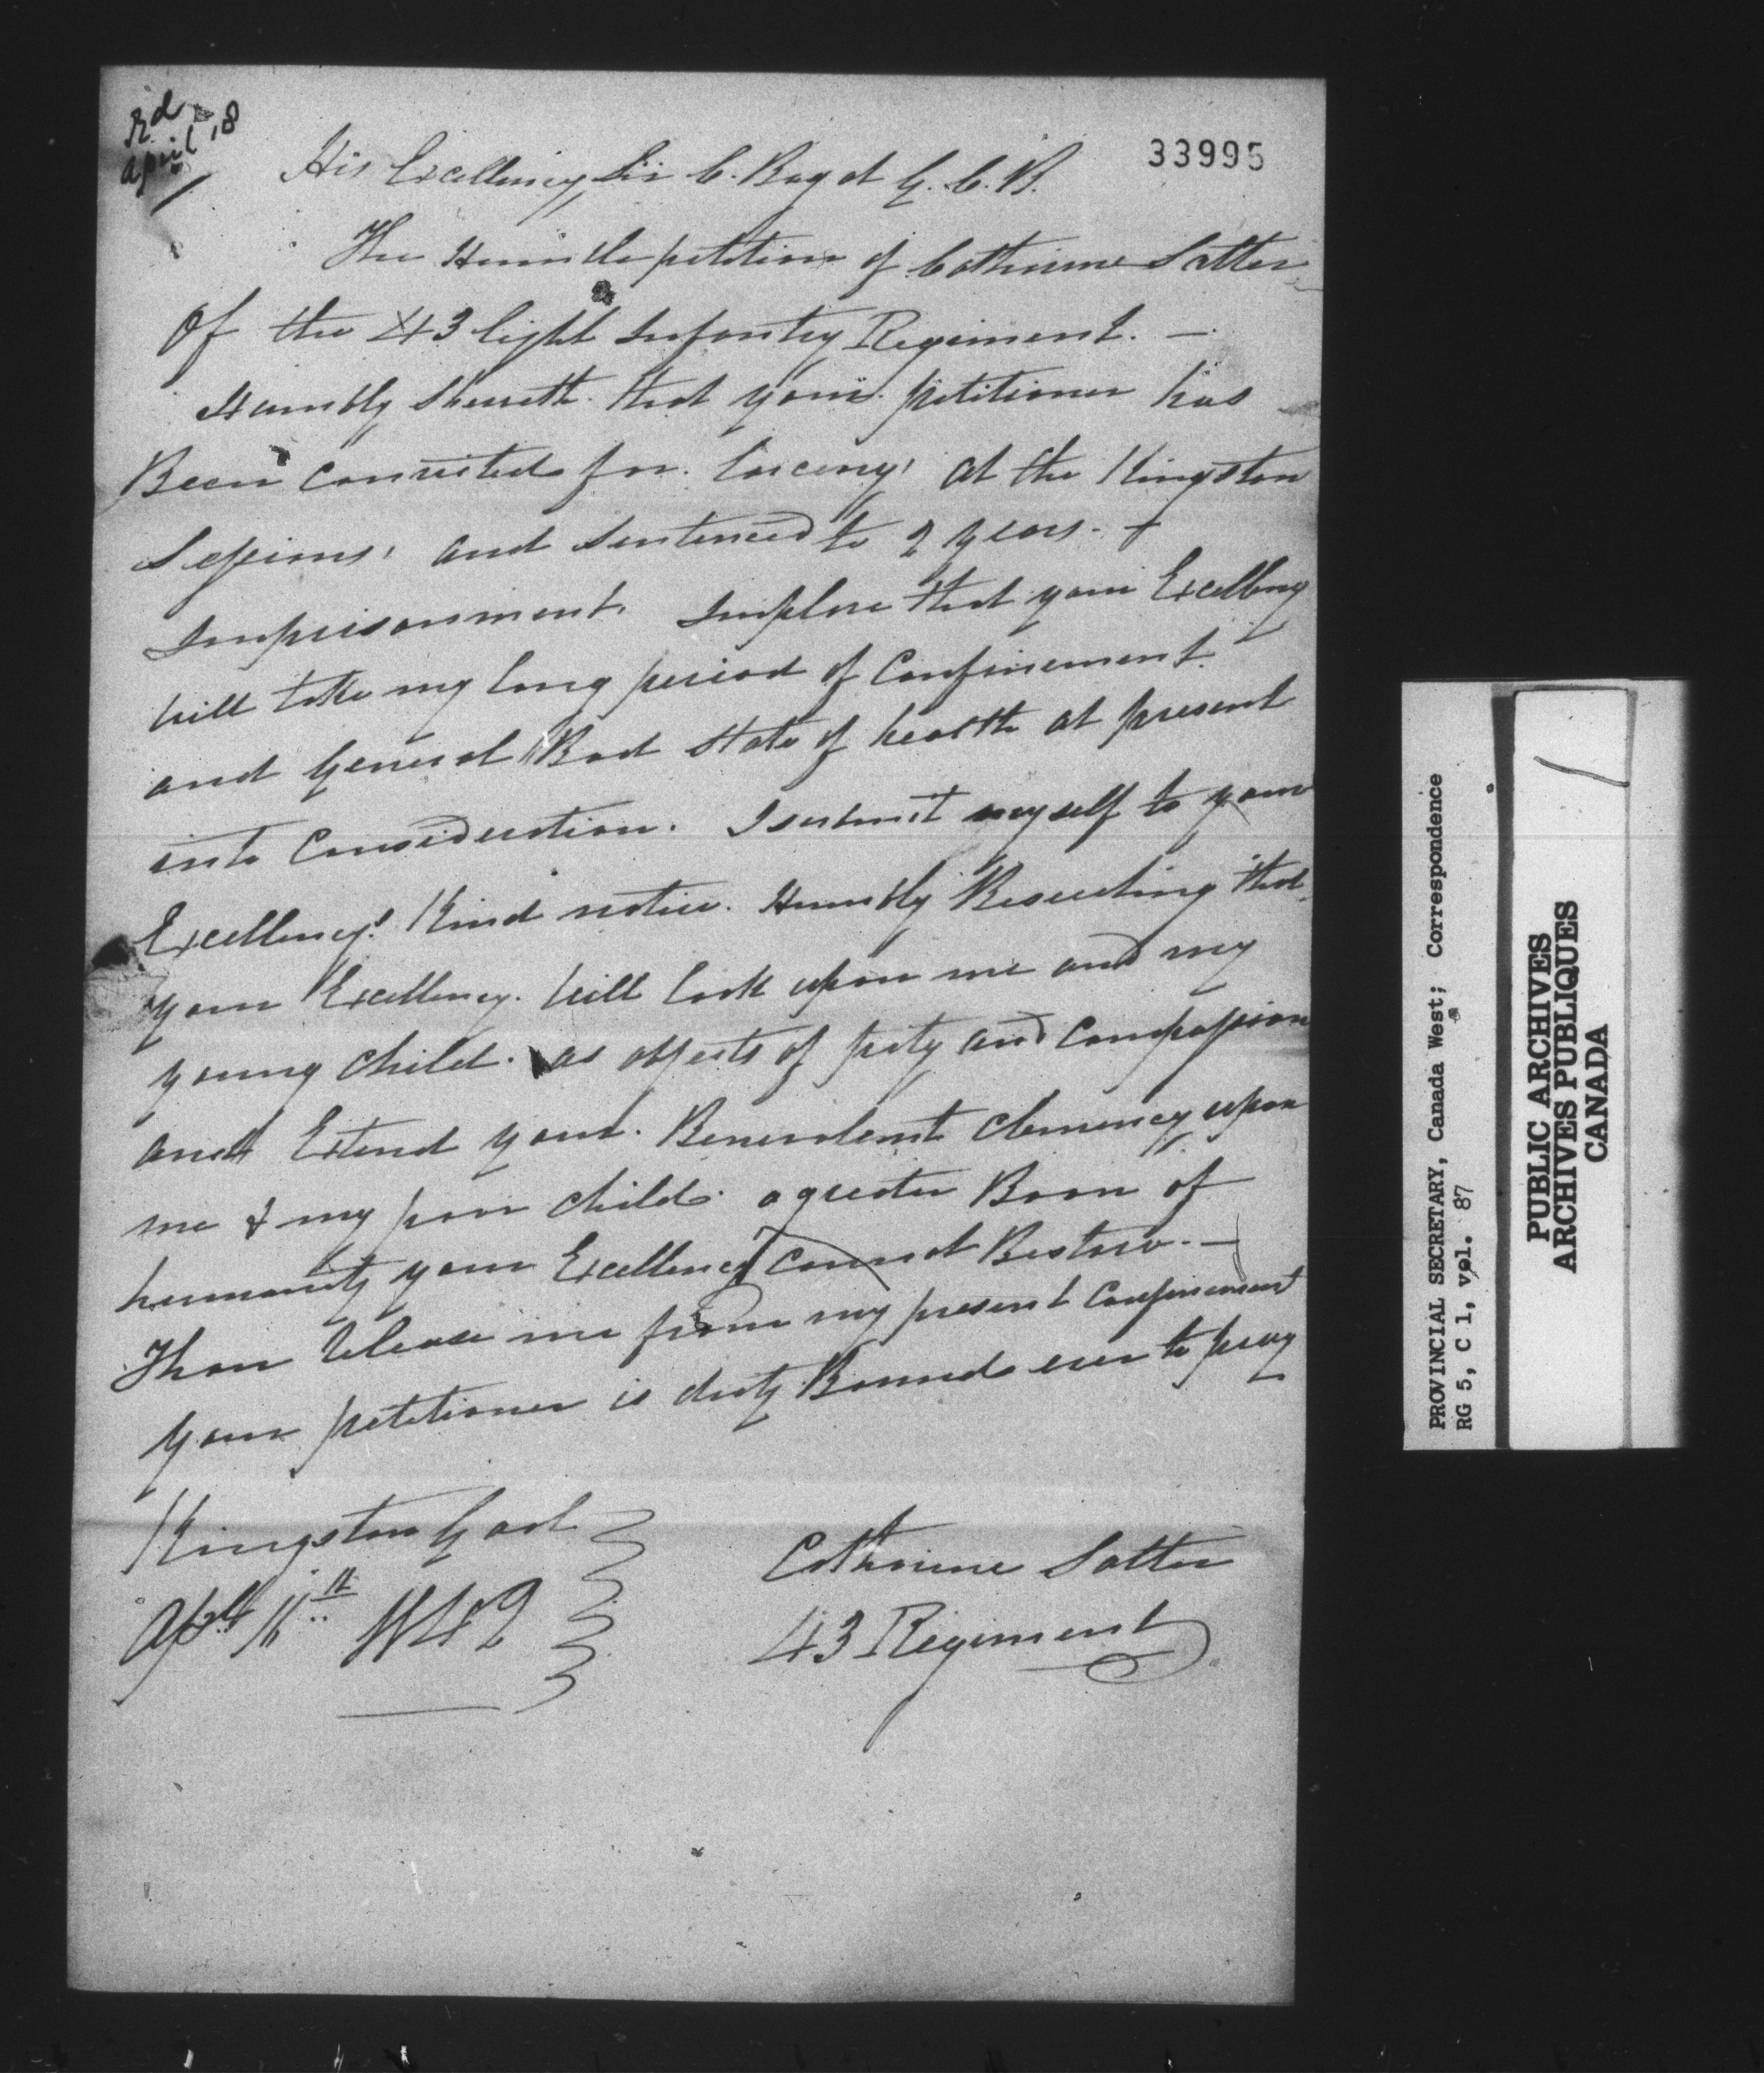 Rd
April 18
33995
His Excellency Sir C. Bagot G. C. B.
The Humble petition of Catherine Salter
Of the 43 light Infantry Regiment. —
Humbly Sheweth. that your petitioner has
Been Convicted for. larceny, at the Kingston
Sessions, and Sentenced to 2 years. —
Imprisonment. Implore that your Excellency
will take my long period of Confinement.
and General Bad State of health at present
into Consideration. I submit myself to your
Excellency's Kind notice. Humbly Beseeching that
your Excellency. will look upon me and my
young Child. as objects of pity and Compassion
and Extend your. Benevolent Clemency upon
me & my poor Child. a greater Boon of
humanity your Excellency Cannot Bestow. —
Than Release me from my present Confinement
your petitioner is duty Bound ever to pray
Kingston Gaol
Apl 16th 1842
Catherine Salter
43 Regiment
PROVINCIAL SECRETARY, Canada West; Correspondence
RG 5, C 1, vol. 87
PUBLIC ARCHIVES
ARCHIVES PUBLIQUES
CANADA